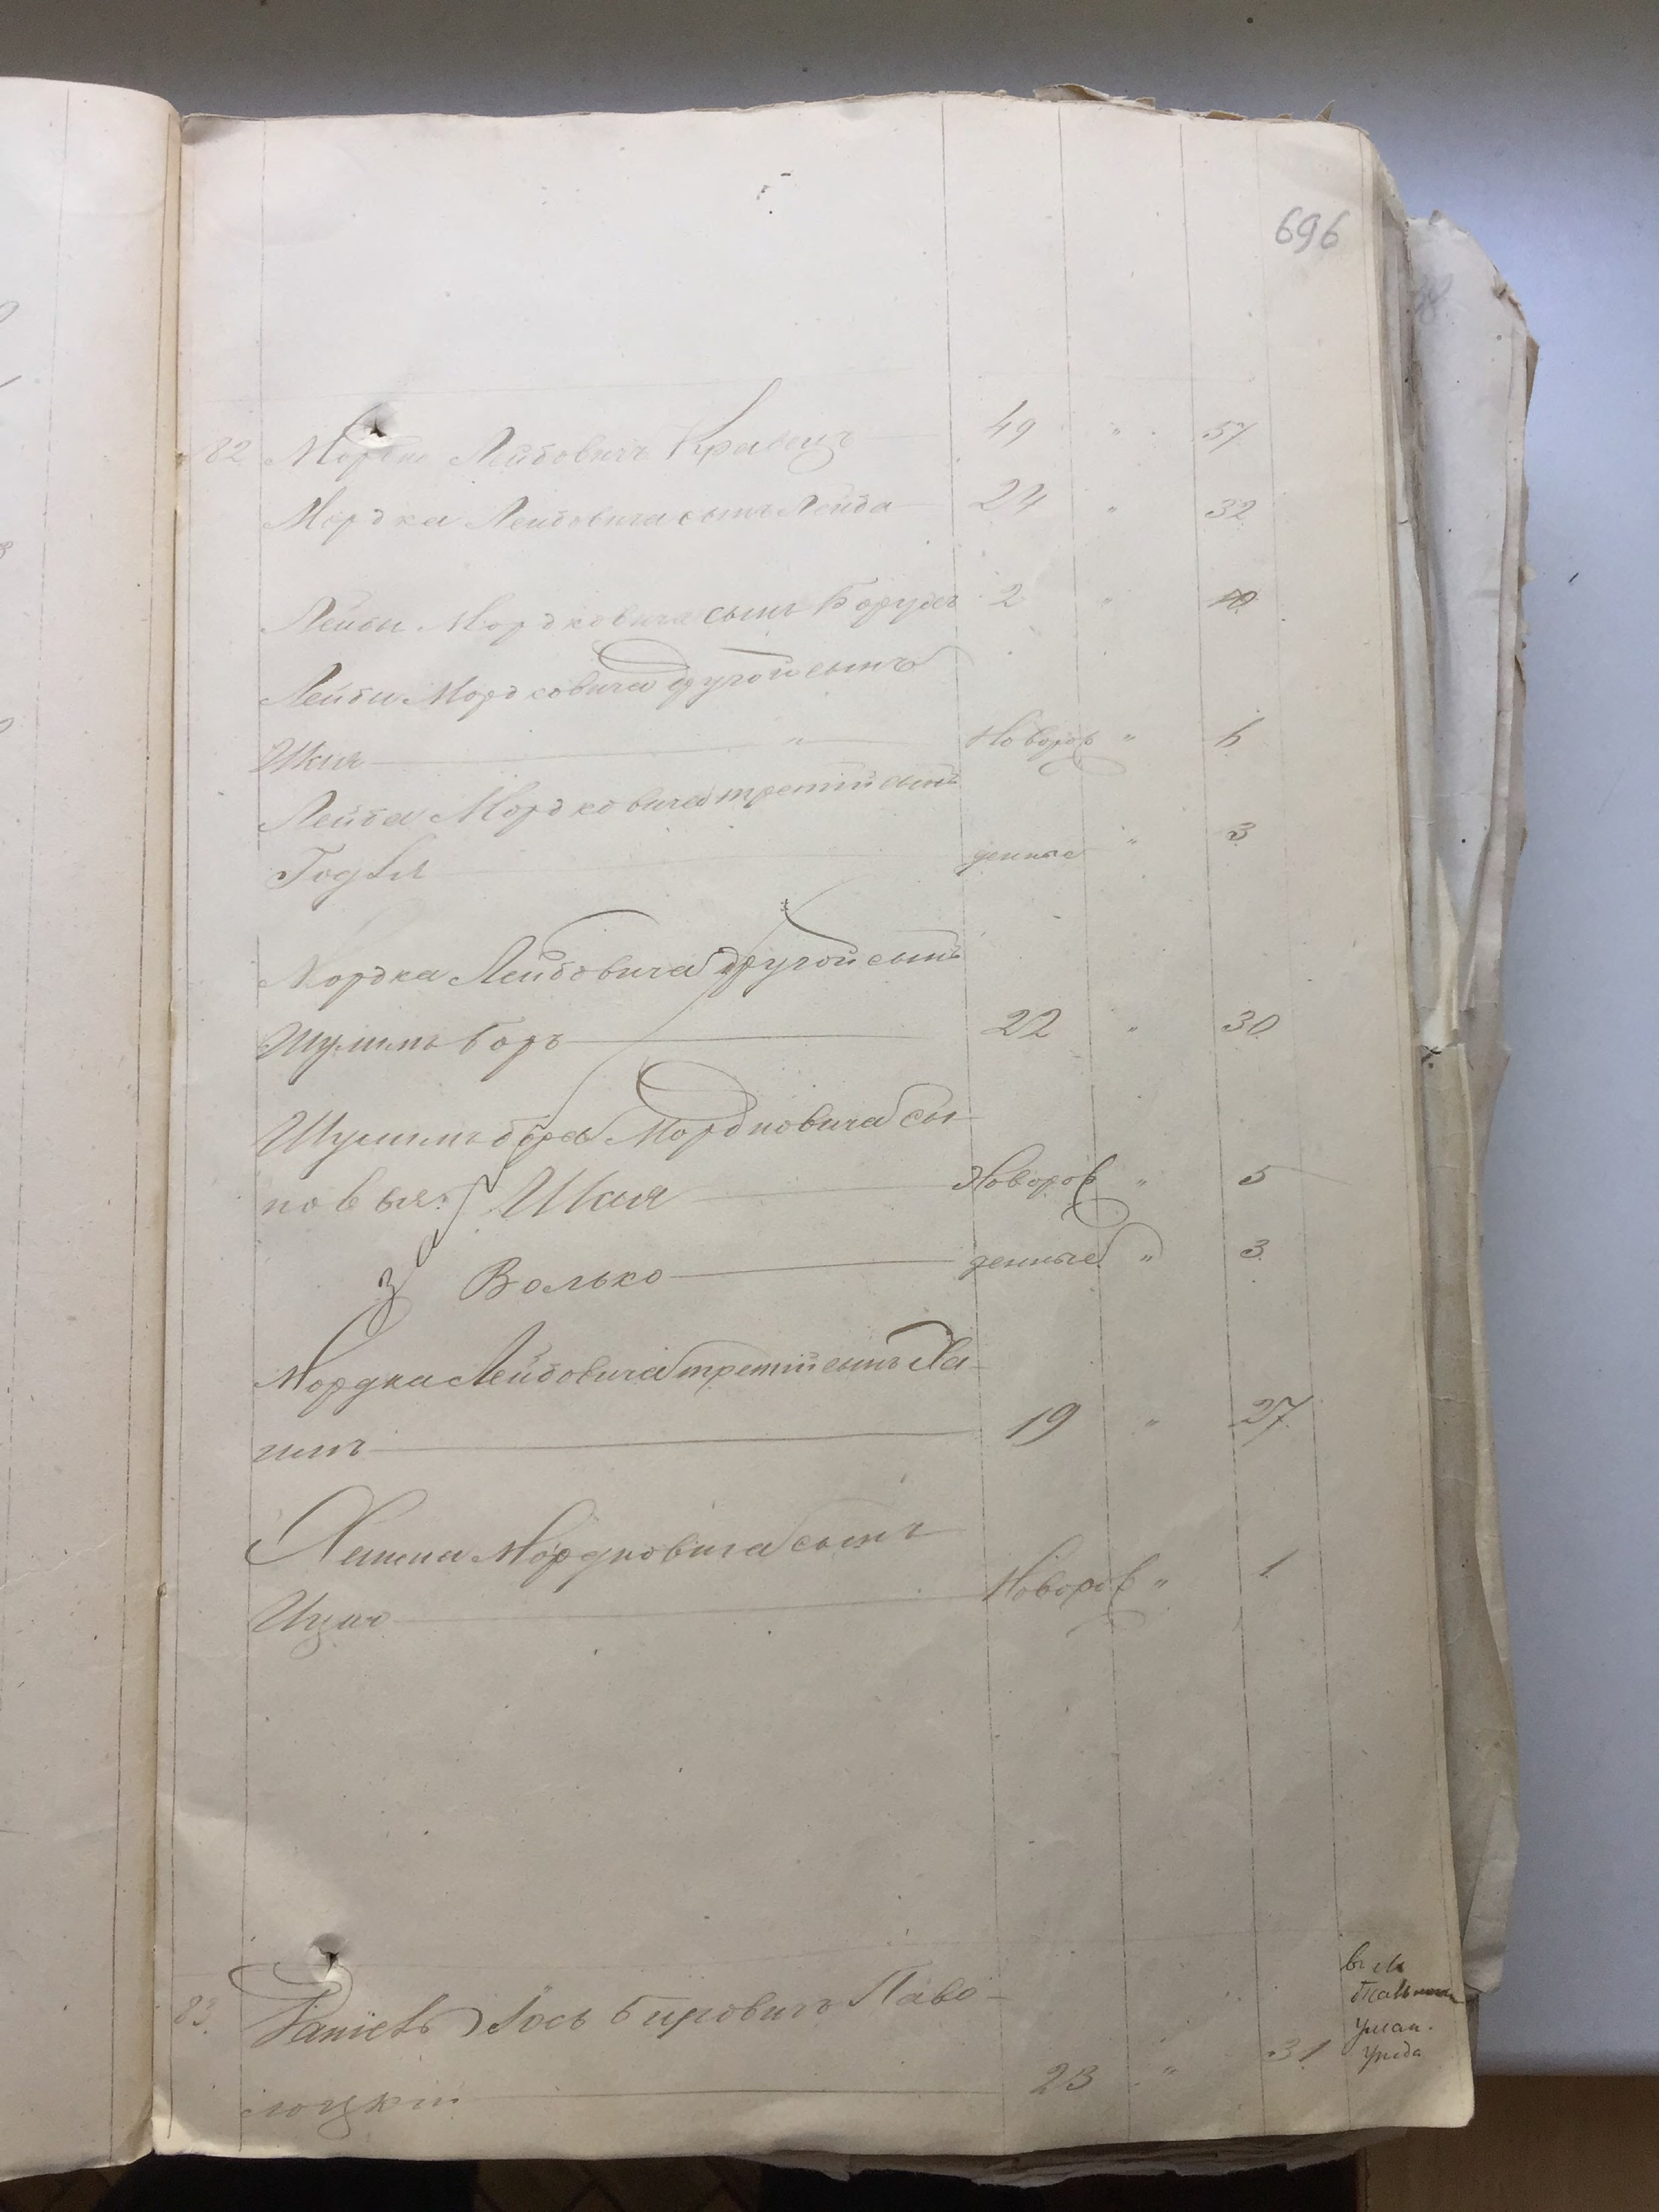 696
82 Мордко Лейбовичъ Кравецъ 49 " 57
Мордка Лейбовича сынъ Лейба 24 " 32
Лейбы Мордковича сынъ Борухъ 2 " 10
Лейбы Мордковича другой сынъ
Икия " Новорож " 6
Лейба Мордковича третiй сынъ
Годля денные " 3
Мордка Лейбовича другой сынъ
Шулимъ Боръ 22 " 30
Шулимъ бера Мордковича сы-
новья: Икия Новорож " 5
Волько денные " 3
Мордка Лейбовича третiй сынъ Ха-
имъ 19 " 27
Хаима Мордковича сынъ
Ицко Новорож " 1
83. Даніель Іось Беровичъ Паво-
лоцкiй 23 " 31
въ м
Уман.
уезда